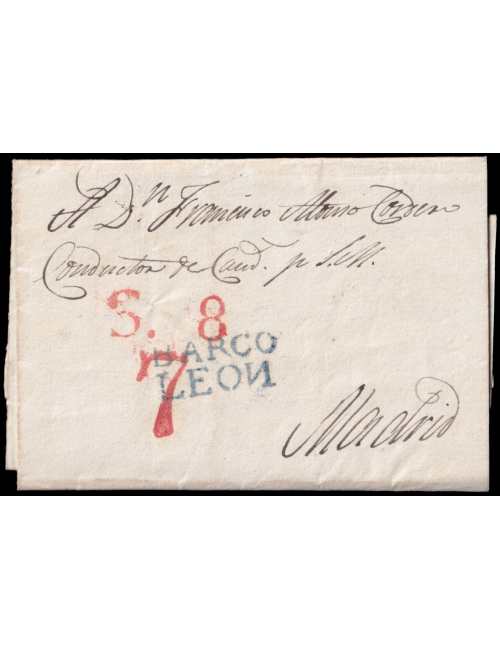 A D.n Francisco Alonso Cordero
Conductor de Caud.s p.r S.M.
S. 8
BARCO
7
LEON
Madrid